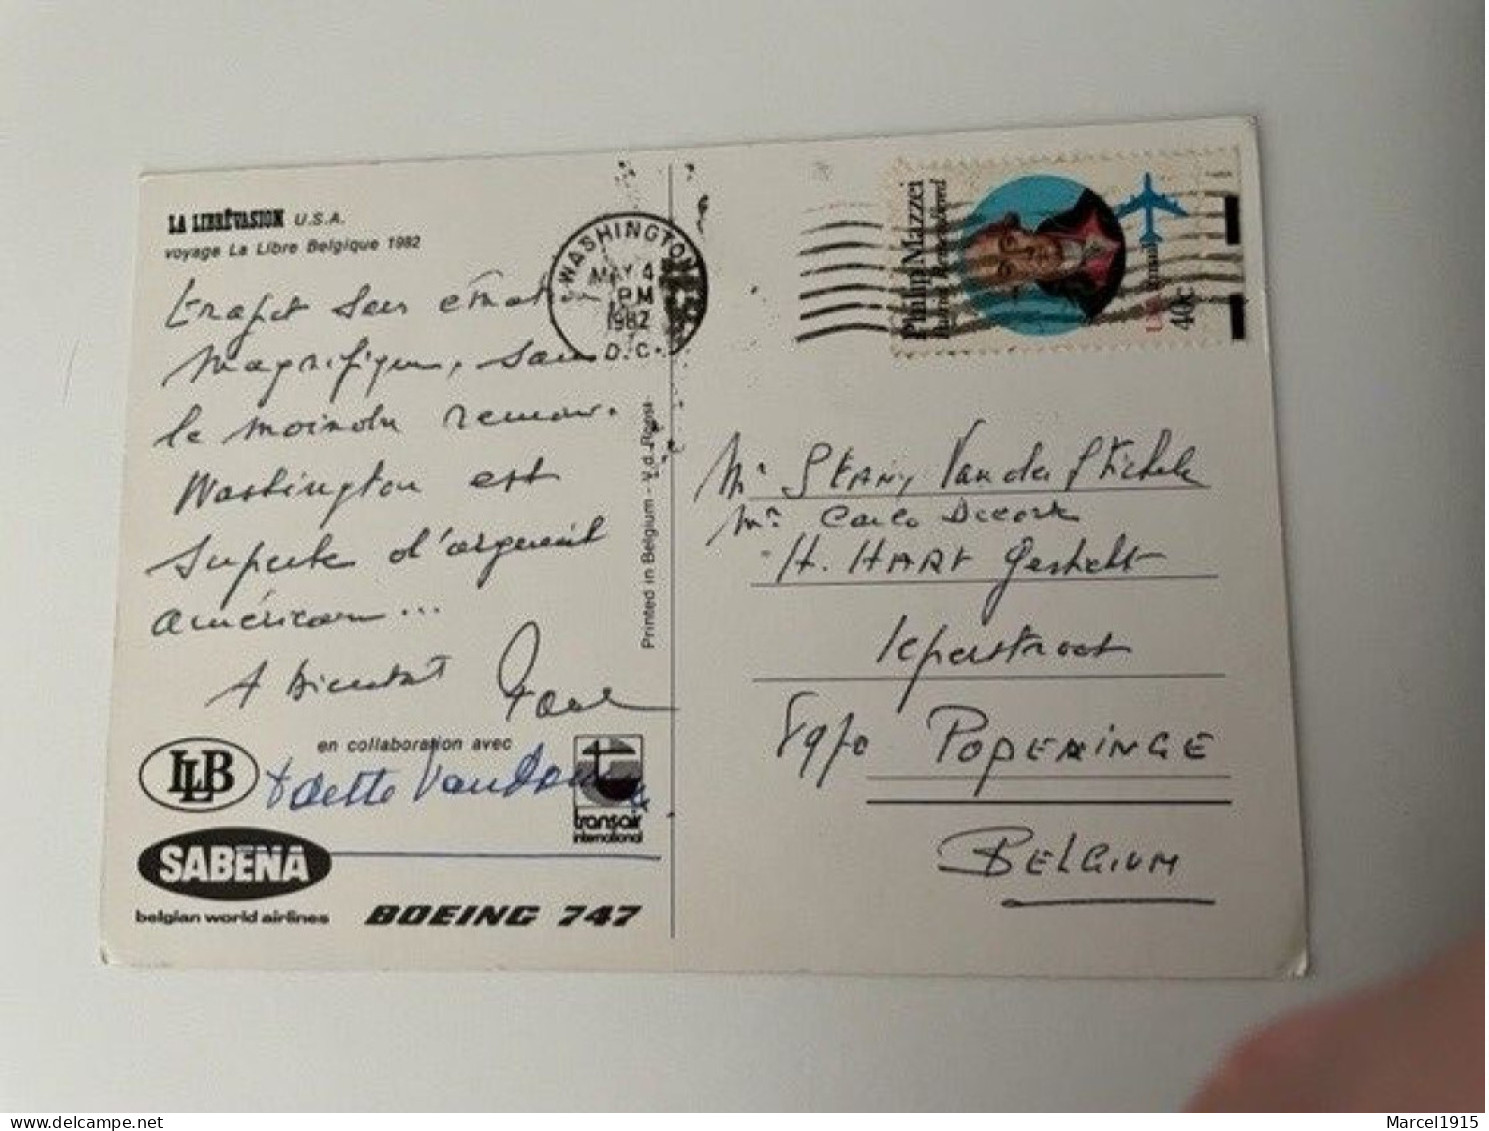 LA LIBRÊVASION U.S.A.
voyage La Libre Belgique 1982
WASHINGTON
MAY 4
PM
1982
D.C.
Philip Mazzei
Patriot Remembered
USAirmail
40c
Trajet sans
magnifique, sans
le moindre remous.
Washington est
superbe d'
américain...
A bientôt Paul
en collaboration avec
LLB
Odette
transair
international
SABENA
belgian world airlines
BOEING 747
Printed in Belgium - V.d. Roost
Mr Stany Van der Stichele
Mr Carlo Decork
H. HART Gesticht
Ieperstraat
8970 POPERINGE
BELGIUM
Marcel1915